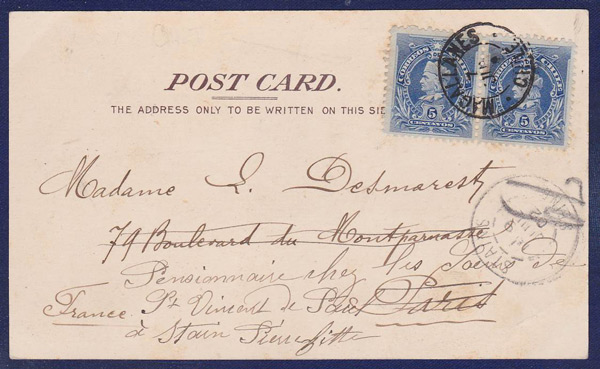 POST CARD.
THE ADDRESS ONLY TO BE WRITTEN ON THIS SIDE
CORREOS CHILE
5
CENTAVOS
CORREOS CHILE
5
CENTAVOS
MAGALLANES CHILE
Madame L. Desmarest
79 Boulevard du Montparnasse
Pensionnaire chez les de
France St Vincent de Paul Paris
à Stain Pierrefitte